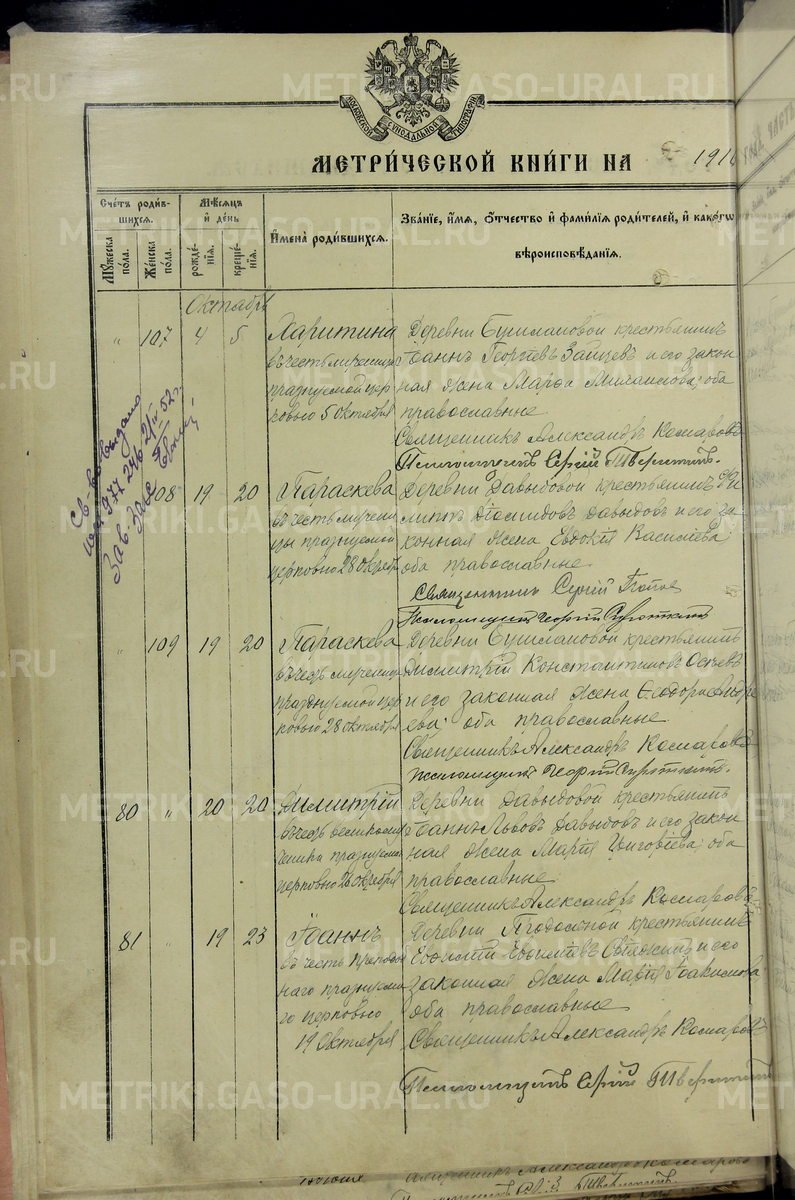 МОСКОВСКОЙ СУНОДАЛЬНОЙ ТИПОГРАФІИ
МЕТРИ́ЧЕСКОЙ КНИ́ГИ НА 1916
Сче́тъ роди́вшихся.
Мѣ́сяцъ и҆ де́нь
Му́жеска по́ла.
Же́нска по́ла.
рожде́нїѧ.
креще́нїѧ.
И҆мена̀ роди́вшихся.
Зва́нїе, и҆́мѧ, ѻ҆́тчество и҆ фами́лїѧ роди́телей, и҆ како́гѡ
вѣроисповѣ́данїѧ.
Октябрь
" 107 4 5 Харитина
въ честь мученицы
празднуемой цер
ковью 5 Октября
Деревни Бушлановой крестьянинъ
Іоаннъ Георгіевъ Зайцевъ и его закон
ная жена Марѳа Михаилова; оба
православные
Священникъ Александръ Комаровъ
Псаломщикъ Сергій Тверитинъ.
108 19 20 Параскева
въ честь мучени
цы празднуемой
церковью 28 Октября
Деревни Давыдовой крестьянинъ Фи
липпъ Давыдовъ и его за
конная жена Евдокія Василіева
оба православные
Священникъ Сергій Попов
Псаломщикъ Георгій
" 109 19 20 Параскева
въ честь мученицы
празднуемой цер
ковью 28 Октября
Деревни Бушлановой крестьянинъ
Димитрій Константиновъ
и его законная жена Ѳеодора Андре
ева; оба православные.
Священникъ Александръ Комаровъ
Псаломщикъ Георгій
80 " 20 20 Димитрій
въ честь великому
ченика празднуемаго
церковью 26 Октября
Деревни Давыдовой крестьянинъ
Іоаннъ Львовъ Давыдовъ и его закон
ная жена Марія Григоріева; оба
православные
Священникъ Александръ Комаровъ
81 " 19 23 Іоаннъ
въ честь преподоб
наго празднуема
го церковью
19 Октября
Деревни крестьянинъ
и его
законная жена Марія
оба православные
Священникъ Александръ Комаровъ
Псаломщикъ Сергій Тверитинъ
Св-во выдано
52 г.
Зав.
METRIKI.GASO-URAL.RU